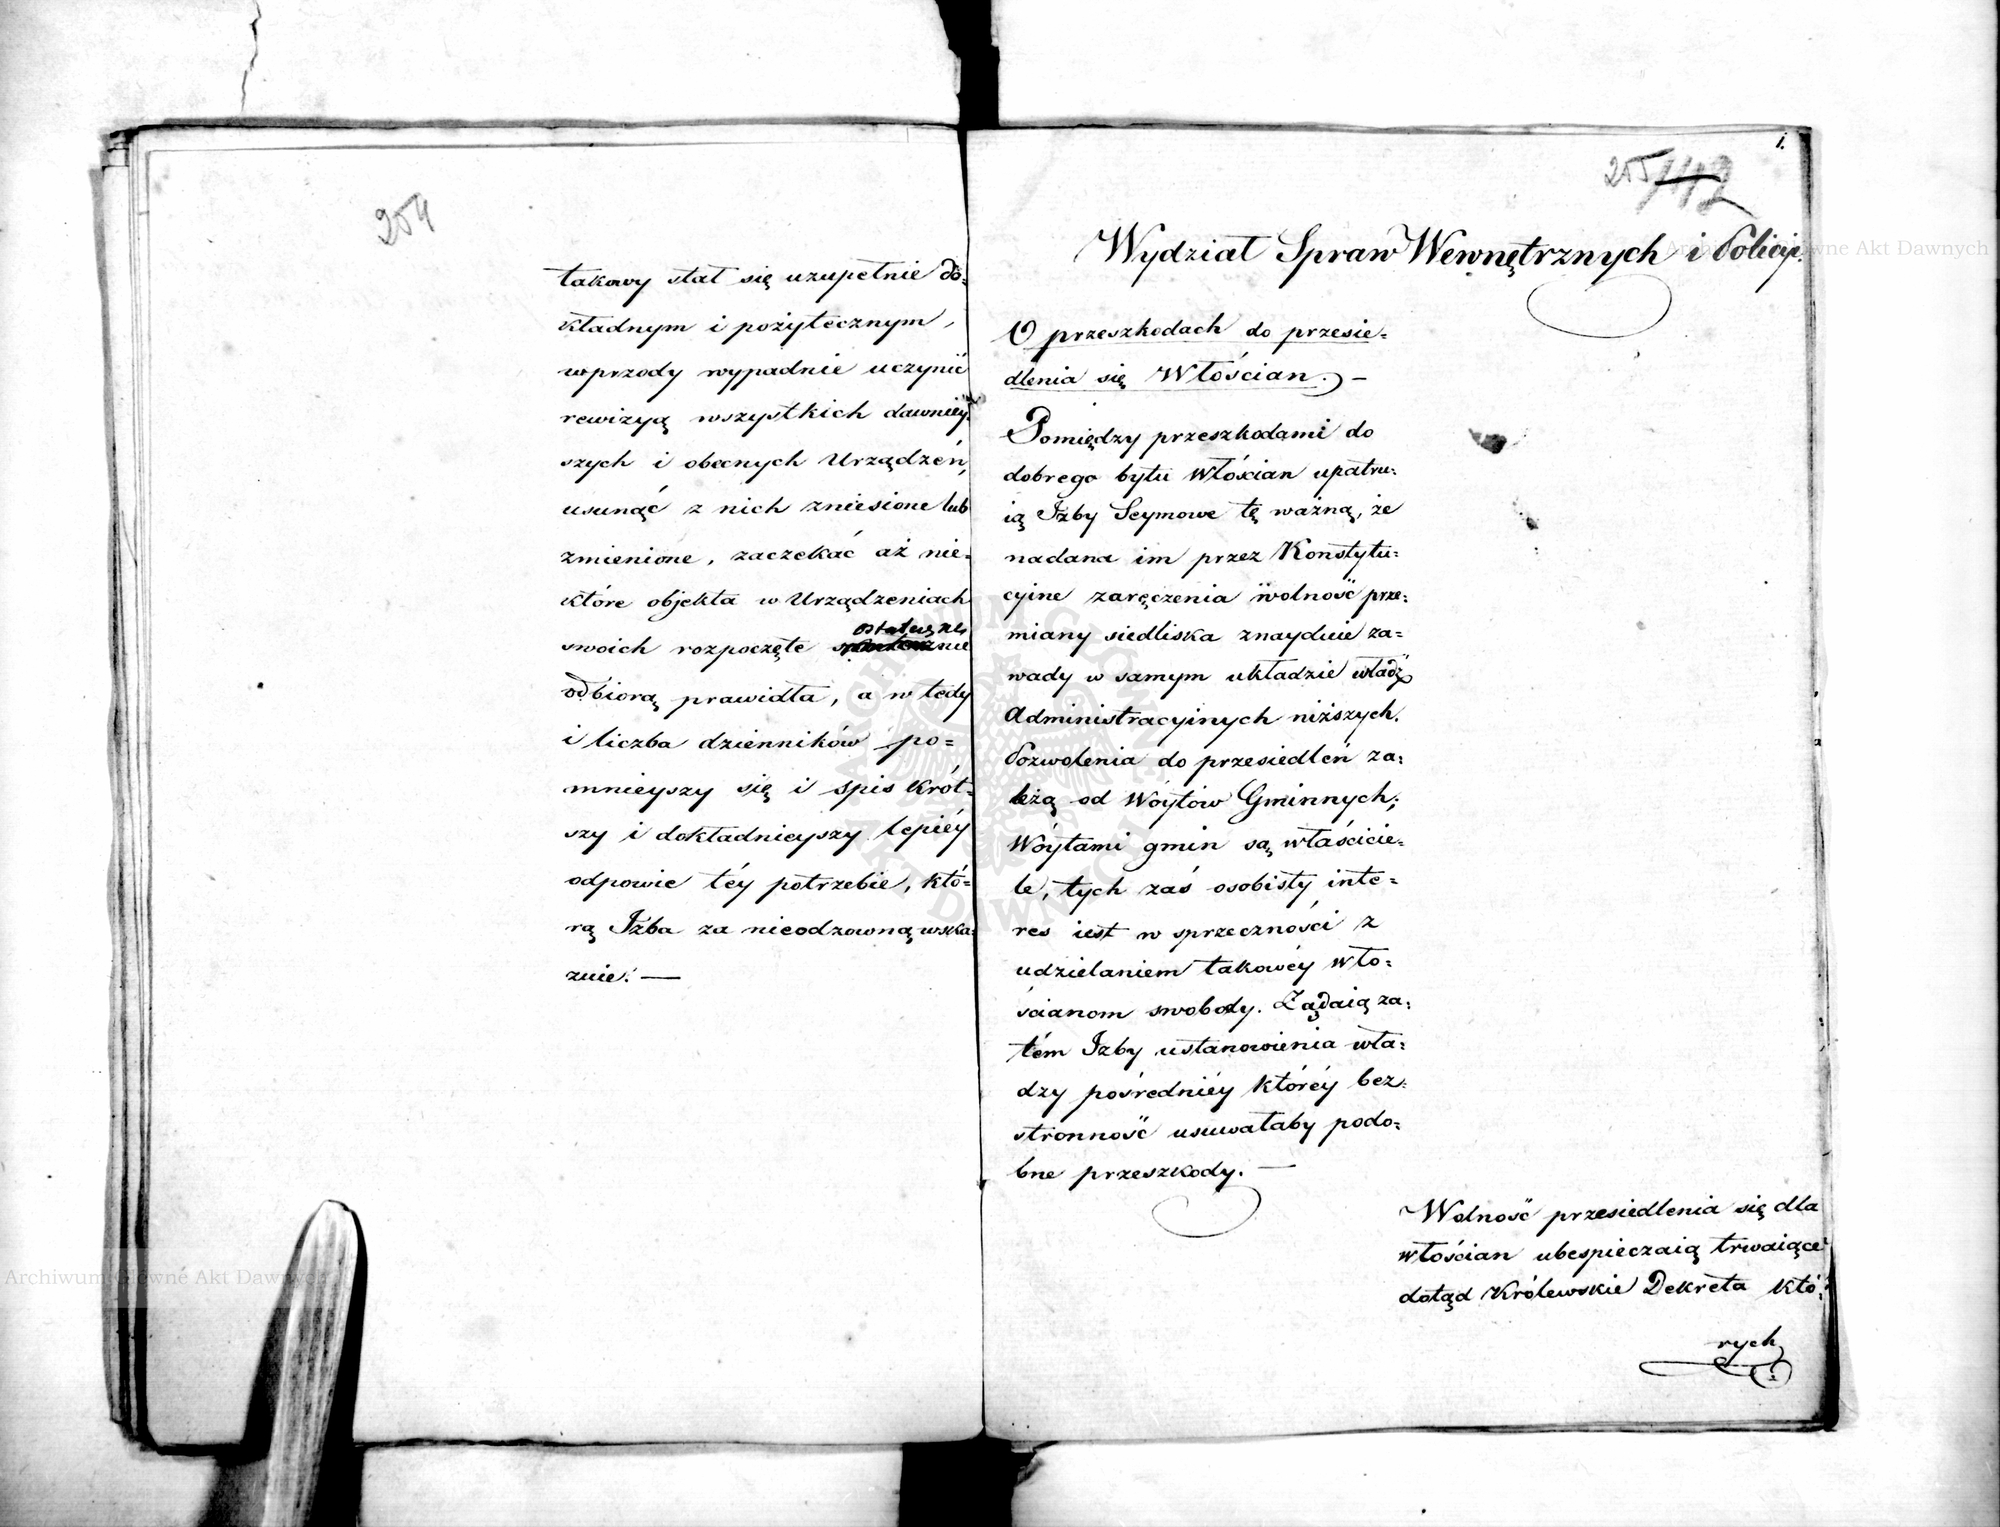 254
takowy stał się uzupełnie do-
kładnym i pożytecznym,
wprzody wypadnie uczynić
rewizyą wszystkich dawniey-
szych i obecnych Urządzeń,
usunąć z nich zniesione lub
zmienione, zaczekać aż nie-
które objekta w Urządzeniach
swoich rozpoczęte ostateczne
odbiorą prawidła, a w tedy
i liczba dzienników po=
mnieyszy się i spis krót-
szy i dokładnieyszy lepiéy
odpowie téy potrzebie, któ=
rą Izba za nieodzowną wska-
zuie. —
1.
255
142
Wydział Spraw Wewnętrznych i Policyi.
O przeszkodach do przesie=
dlenia się Włościan. —
Pomiędzy przeszkodami do
dobrego bytu Włóścian upatru-
ią Izby Seymowe tę ważną, że
nadana im przez Konstytu-
cyine zaręczenia wolność prze-
miany siedliska znayduie za=
wady w samym układzie władz
Administracyinych niższych.
Pozwolenia do przesiedleń za-
leżą od Wóytów Gminnych;
Wóytami gmin są właścicie-
le, tych zaś osobisty inte=
res iest w sprzeczności z
udzielaniem takowéy wło-
ścianom swobody. Żądaią za-
tém Izby ustanowienia wła-
dzy pośredniéy któréy bez-
stronność usuwałaby podo-
bne przeszkody. —
Wolność przesiedlenia się dla
włościan ubespieczaią trwaiące
dotąd Królewskie Dekreta któ-
rych
Archiwum Główne Akt Dawnych
Archiwum Główne Akt Dawnych
ARCHIWUM GŁÓWNE AKT DAWNYCH